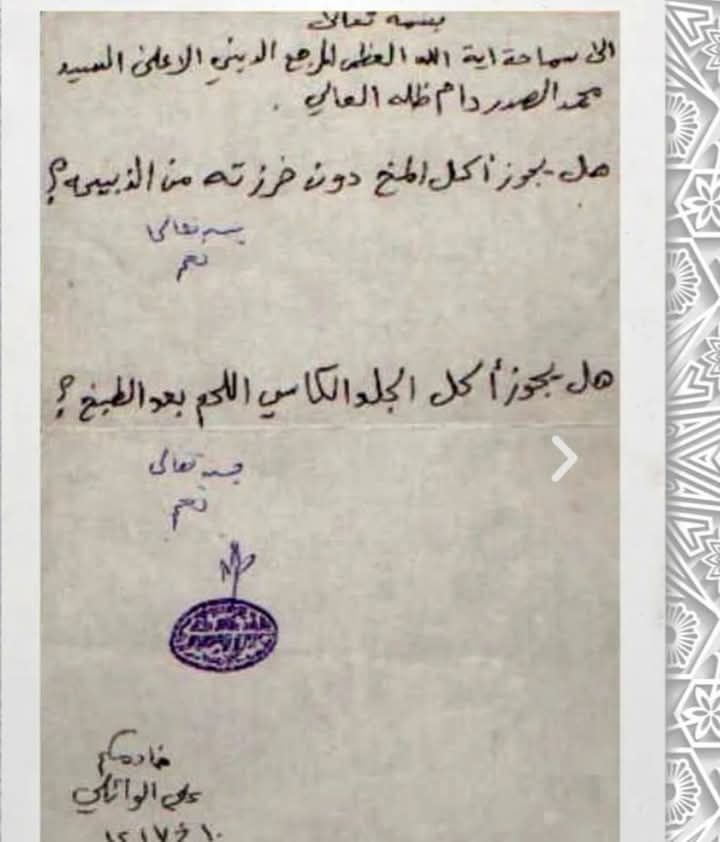 بسمه تعالى
الى سماحة اية الله العظمى المرجع الديني الاعلى السيد
محمد الصدر دام ظله العالي .
هل يجوز أكل المخ دون خرزته من الذبيحة؟
بسمه تعالى
نعم
هل يجوز أكل الجلد الكاسي اللحم بعد الطبخ؟
بسمه تعالى
نعم
خادمكم
علي الوائلي